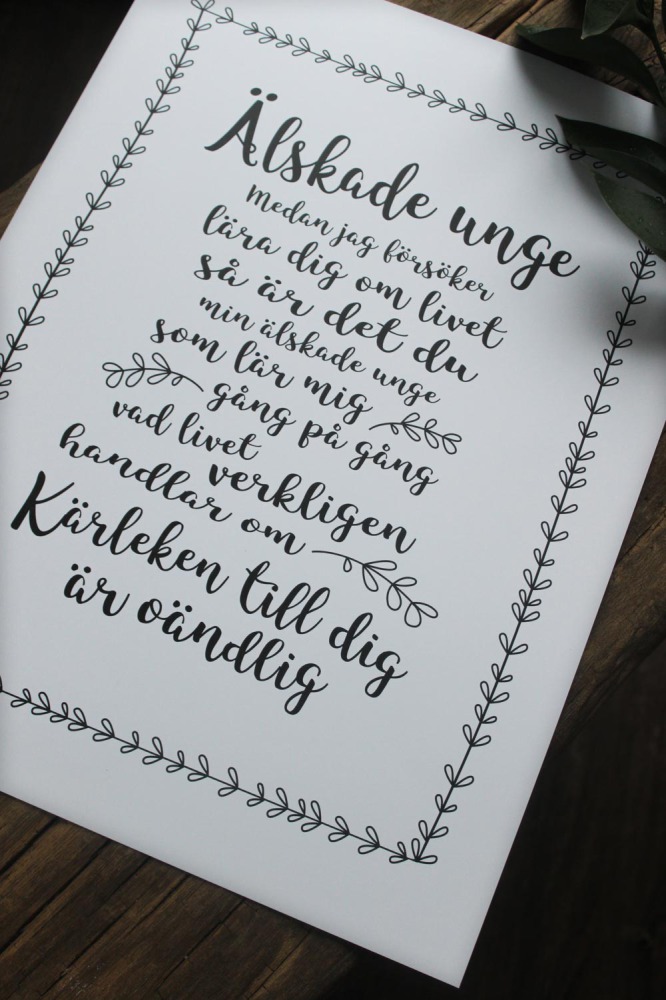 Älskade unge
Medan jag försöker
lära dig om livet
så är det du
min älskade unge
som lär mig
gång på gång
vad livet
verkligen
handlar om
Kärleken till dig
är oändlig